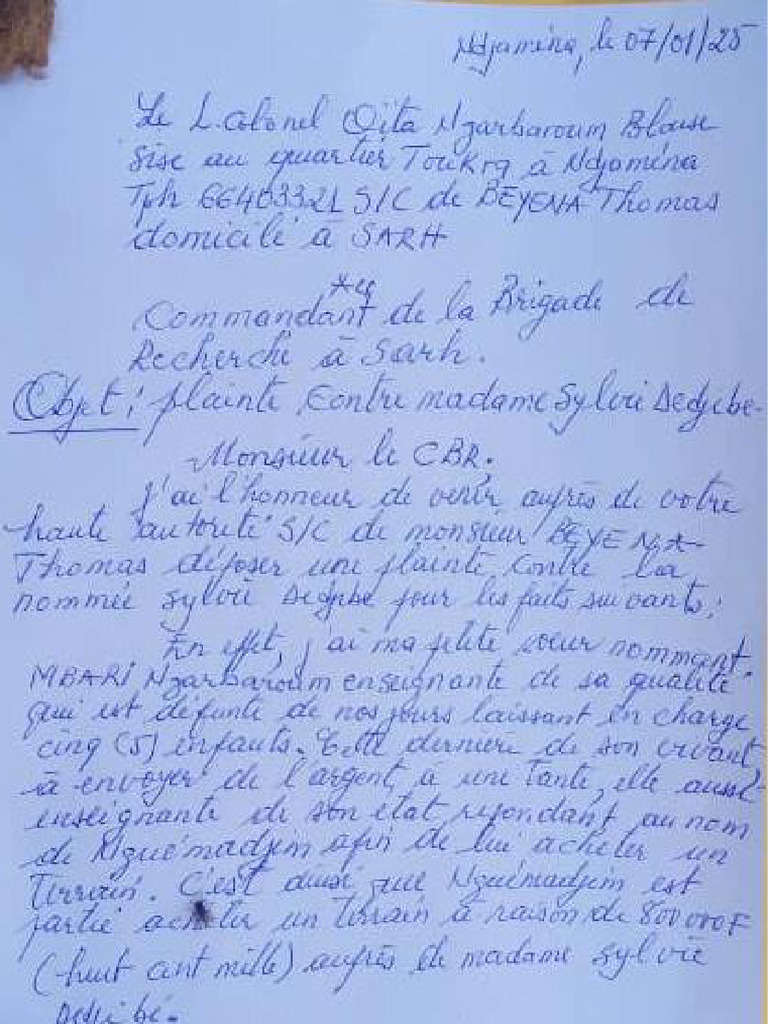 Ndjaména, le 07/01/25
Le L.Colonel Oita Ngarbaroum Blaise
Sise au quartier Toukra à Ndjaména
Tph 66403321 S/C de BEYENA Thomas
domicilé à SARH
*u
Commandant de la Brigade de
Recherche à Sarh.
Objet: plainte Contre madame Sylvie Dedjebé.
Monsieur le CBR.
J'ai l'honneur de venir auprès de votre
haute autorité S/C de monsieur BEYENA
Thomas déposer une plainte contre la
nommée Sylvie Dedjebé pour les faits suivants:
En effet, j'ai ma petite sœur nommant
MBARI Ngarbaroum enseignante de sa qualité
qui est défunte de nos jours laissant en charge
cinq (5) enfants. Cette dernière de son vivant
a envoyer de l'argent à une Tante, elle aussi
enseignante de son état repondant au nom
de Nguémadjim afin de lui acheter un
Terrain. C'est ainsi que Nguémadjim est
partie acheter un Terrain à raison de 800 000F
(huit cent mille) auprès de madame Sylvie
Dedjebé.